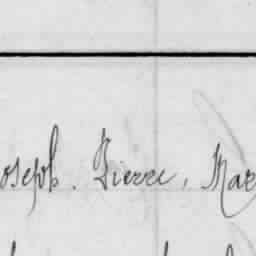 oseph. Pierre, Mar